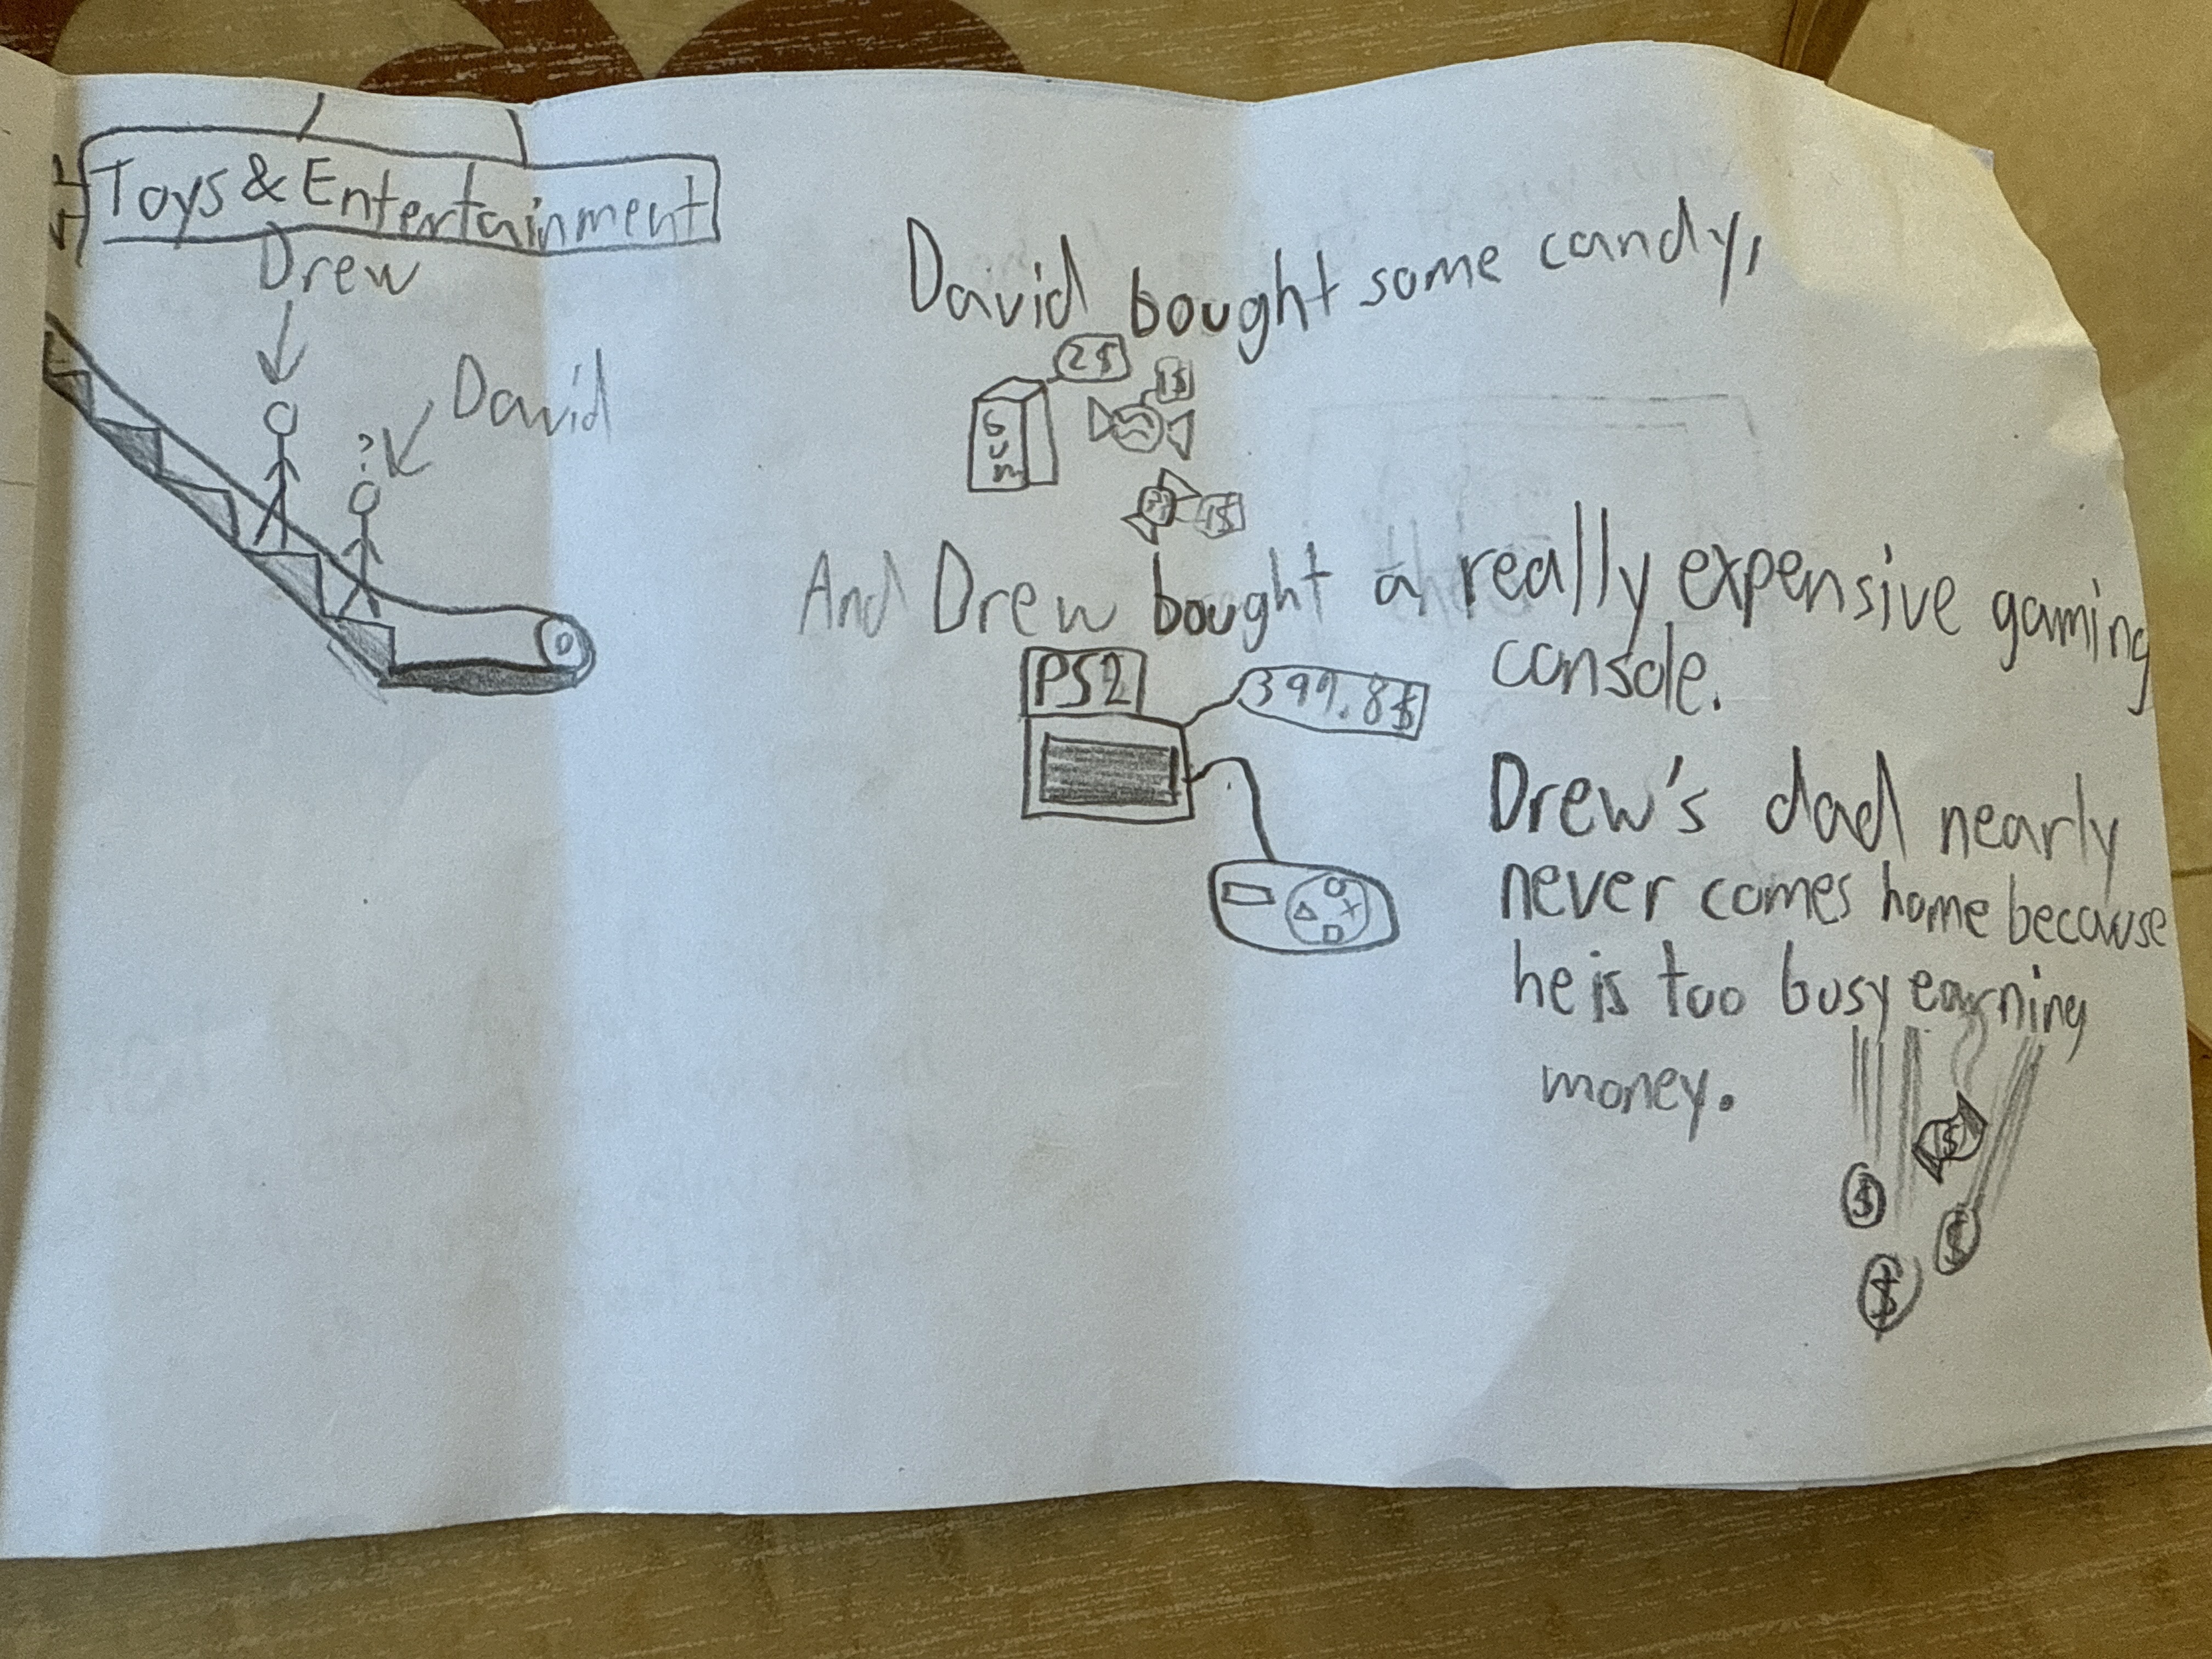 Toys & Entertainment
Drew
David
?
David bought some candy,
2$
1$
Gum
1$
And Drew bought a really expensive gaming
console.
PS2
399.8$
Drew's dad nearly
never comes home because
he is too busy earning
money.
$
$
$
$